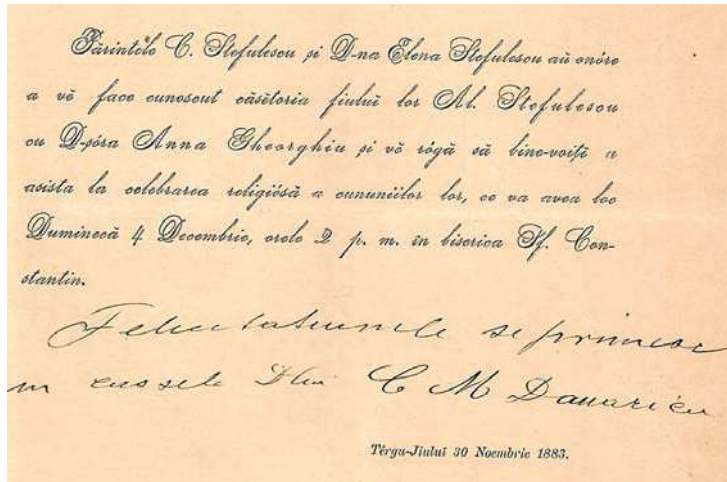 Părintele C. Stefulescu și D-na Elena Stefulescu aŭ onóre
a vĕ face cunoscut căsĕtoria fiuluĭ lor Al. Stefulescu
cu D-şóra Anna Gheorghiu și vĕ rógă să bine-voițĭ a
asista la celebrarea religiósă a cununiilor lor, ce va avea loc
Duminecă 4 Decembrie, orele 2 p. m. în biserica Sf. Con-
stantin.
Felicitatiunile se primesc
in casele Dlui C M
Tĕrgu-Jiuluĭ 30 Noembrie 1883.